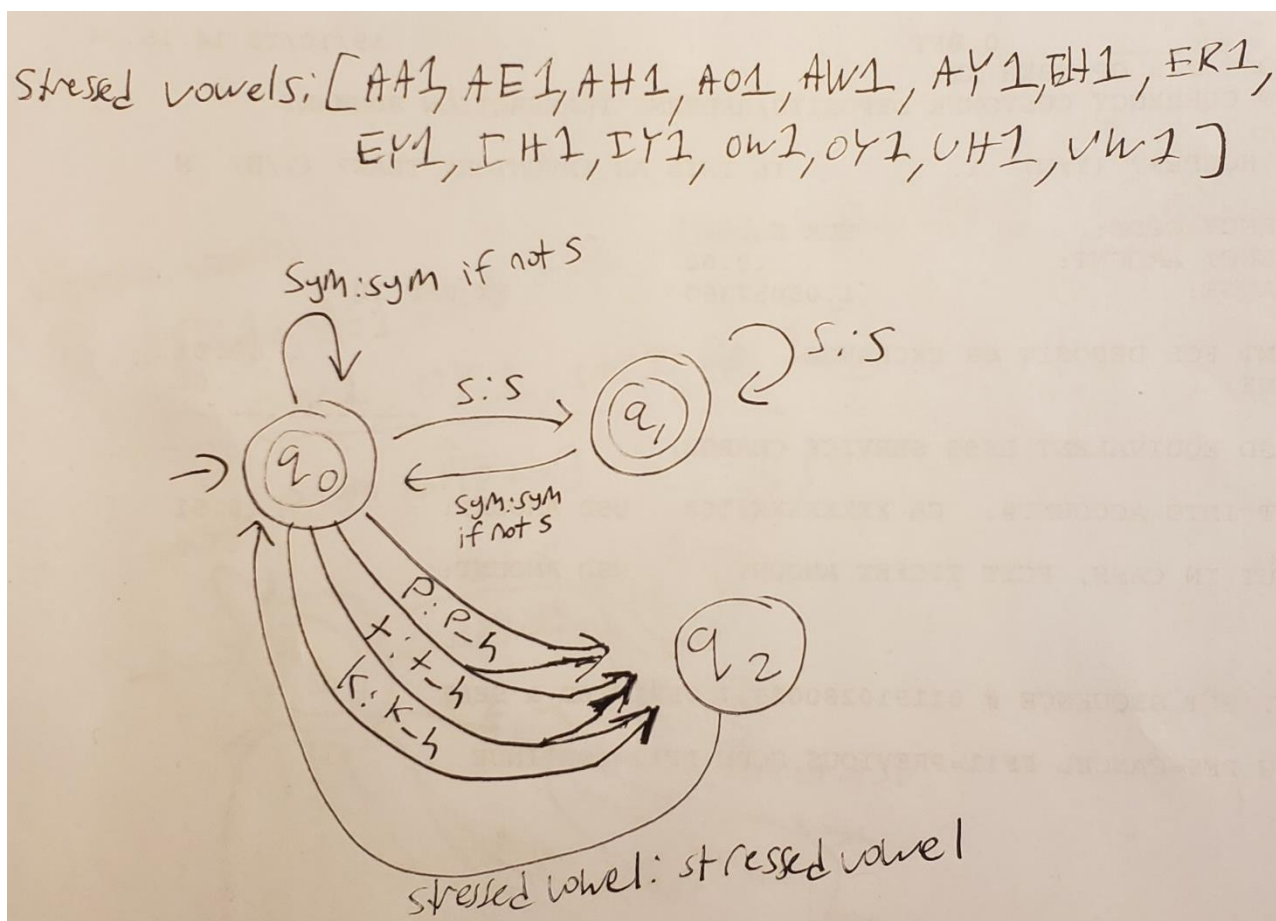 Stressed vowels: [AA1, AE1, AH1, AO1, AW1, AY1, EH1, ER1,
EY1, IH1, IY1, OW1, OY1, UH1, UW1]
Sym:sym if not S
S:S
S:S
q0
q1
sym:sym
if not S
P:P_h
T:T_h
K:K_h
q2
stressed vowel: stressed vowel